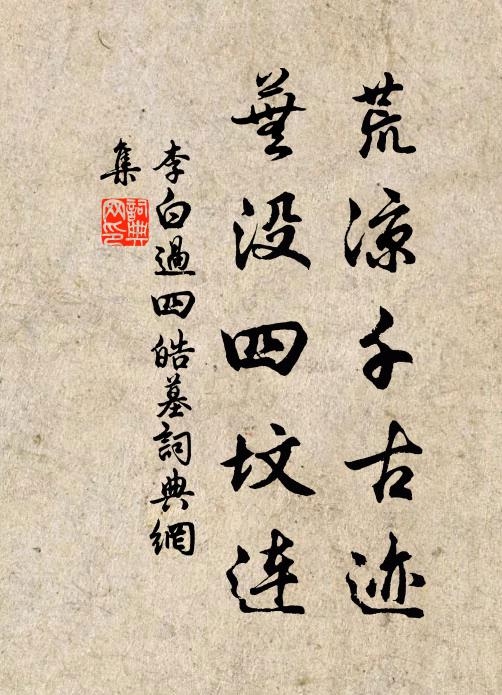 荒凉千古迹
蕪没四坟連
李白過四皓墓詞典網
集
詞典
网印